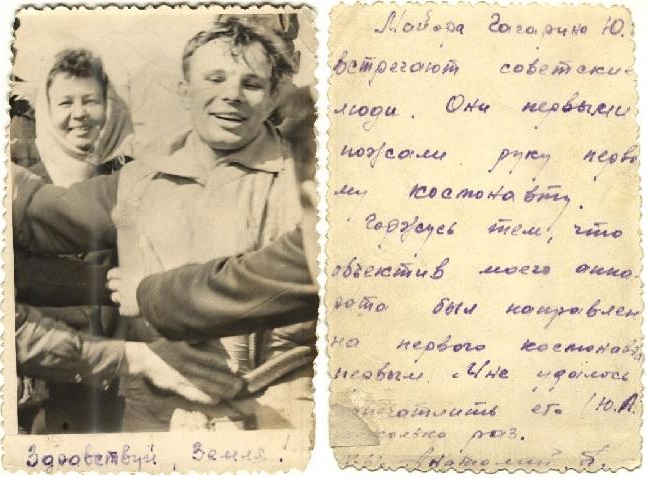 Здравствуй, Земля!
Майора Гагарина Ю.
встречают советски-
люди. Они первыми
пожали руку перво
му космонавту.
Горжусь тем, что
объектив моего аппа-
рата был направлен
на первого космонавта
первым. Мне удалось
печатлить его (Ю.А.
сколько раз.
Анатолий